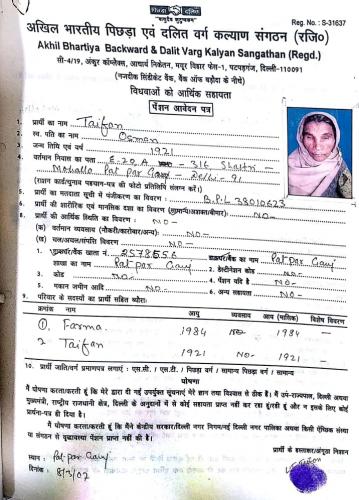 पिछड़ा दलित
"वसुधैव कुटुम्बकम्"
Reg. No. : S-31637
अखिल भारतीय पिछड़ा एवं दलित वर्ग कल्याण संगठन (रजि०)
Akhil Bhartiya Backward & Dalit Varg Kalyan Sangathan (Regd.)
सी-4/19, अंकुर कॉम्प्लेक्स, आचार्य निकेतन, मयूर विहार फेस-1, पटपड़गंज, दिल्ली-110091
(नजदीक सिंडीकेट बैंक, बैंक ऑफ बड़ौदा के नीचे)
विधवाओं को आर्थिक सहायता
पेंशन आवेदन पत्र
1. प्रार्थी का नाम Taifan
2. स्व. पति का नाम Osman
3. जन्म तिथि एवं वर्ष 1921
4. वर्तमान निवास का पता E-20, A 316 Shastri
Mohallo Pat par Gauj Delhi-91
(राशन कार्ड/चुनाव पहचान-पत्र की फोटो प्रतिलिपि संलग्न करें।)
5. प्रार्थी का मतदाता सूची में पंजीकरण का विवरण : B.P.L 38010623
6. प्रार्थी की शारीरिक एवं मानसिक दशा का विवरण (सामान्य/अशक्त/बीमार): NO-
प्रार्थी की आर्थिक स्थिति का विवरण : NO-
(क) वर्तमान व्यवसाय (नौकरी/कारोबार/अन्य): NO-
(ख) चल/अचल/संपत्ति विवरण : NO-
खाता नं. 2578556 Pat par Gauj
शाखा का नाम Pat par Gauj 2. डेस्टीनेशन कोड NO-
3. कोड NO- 4. पेंशन यदि है NO-
5. मकान जमीन आदि NO- 6. अन्य सहायता NO-
9. परिवार के सदस्यों का प्रार्थी सहित ब्यौरा:
क्रमांक नाम आयु व्यवसाय आय (मासिक) विशेष विवरण
①. Farma 1984 1984 -
2 Taifan 1921 NO- 1921 -
10. प्रार्थी जाति/वर्ग प्रमाणपत्र लगाएं : एस.सी. / एस.टी. / पिछड़ा वर्ग / सामान्य पिछड़ा वर्ग / सामान्य
घोषणा
मैं घोषणा करता/करती हूं कि मेरे द्वारा दी गई उपर्युक्त सूचनाएं मेरे ज्ञान तथा विश्वास से ठीक हैं। मैं उप-राज्यपाल, दिल्ली अथवा
मुख्यमंत्री, राष्ट्रीय राजधानी क्षेत्र, दिल्ली के अनुदानों में से कोई सहायता प्राप्त नहीं कर रहा हूं/रही हूं और न इसके लिए कोई
प्रार्थना-पत्र ही दिया है।
मैं घोषणा करता/करती हूं कि मैंने केन्द्रीय सरकार/दिल्ली नगर निगम/नई दिल्ली नगर पालिका अथवा किसी ऐच्छिक संस्था
या संगठन से वृद्धावस्था पेंशन प्राप्त नहीं की है।
प्रार्थी के हस्ताक्षर/अंगूठा निशान
स्थान : Pat par Gauj
दिनांक : 8/3/07
Taifan